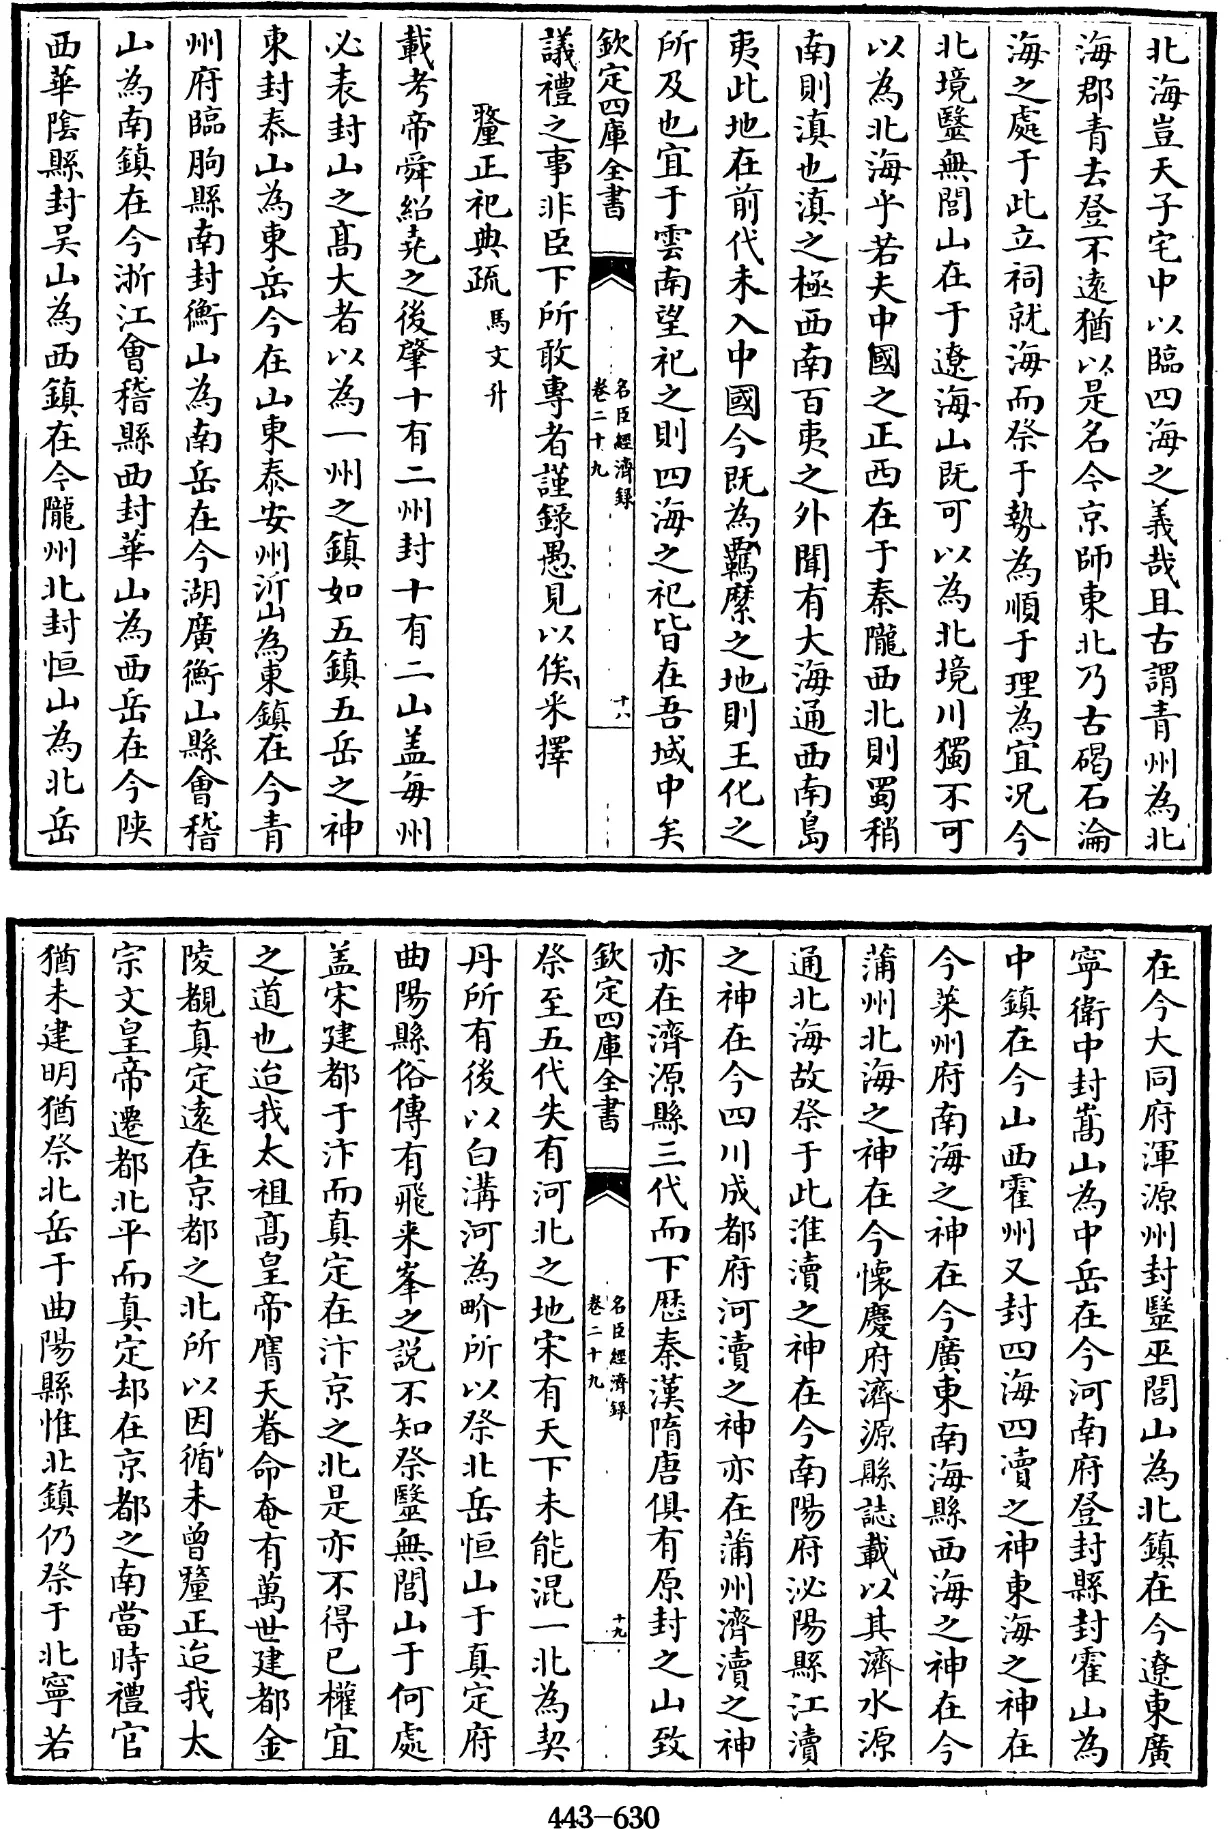 北海豈天子宅中以臨四海之義哉且古謂青州為北
海郡青去登不遠猶以是名今京師東北乃古碣石淪
海之處于此立祠就海而祭于勢為順于理為宜况今
北境毉無閭山在于遼海山既可以為北境川獨不可
以為北海乎若夫中國之正西在于秦隴西北則蜀稍
南則滇也滇之極西南百夷之外聞有大海通西南島
夷此地在前代未入中國今既為羈縻之地則王化之
所及也宜于雲南望祀之則四海之祀皆在吾域中矣
欽定四庫全書
名臣經濟録
卷二十九
十八
議禮之事非臣下所敢專者謹録愚見以俟采擇
釐正祀典疏 馬文升
載考帝舜紹堯之後肇十有二州封十有二山盖每州
必表封山之髙大者以為一州之鎮如五鎮五岳之神
東封泰山為東岳今在山東泰安州沂山為東鎮在今青
州府臨朐縣南封衡山為南岳在今湖廣衡山縣會稽
山為南鎮在今浙江會稽縣西封華山為西岳在今陜
西華隂縣封吴山為西鎮在今隴州北封恒山為北岳
在今大同府渾源州封毉巫閭山為北鎮在今遼東廣
寧衛中封嵩山為中岳在今河南府登封縣封霍山為
中鎮在今山西霍州又封四海四瀆之神東海之神在
今萊州府南海之神在今廣東南海縣西海之神在今
蒲州北海之神在今懷慶府濟源縣誌載以其濟水源
通北海故祭于此淮瀆之神在今南陽府泌陽縣江瀆
之神在今四川成都府河瀆之神亦在蒲州濟瀆之神
亦在濟源縣三代而下歴秦漢隋唐俱有原封之山致
欽定四庫全書
名臣經濟録
卷二十九
十九
祭至五代失有河北之地宋有天下未能混一北為契
丹所有後以白溝河為界所以祭北岳恒山于真定府
曲陽縣俗傳有飛来峯之説不知祭毉無閭山于何處
盖宋建都于汴而真定在汴京之北是亦不得已權宜
之道也迨我太祖髙皇帝膺天眷命奄有萬世建都金
陵覩真定逺在京都之北所以因循未曾釐正迨我太
宗文皇帝遷都北平而真定却在京都之南當時禮官
猶未建明猶祭北岳于曲陽縣惟北鎮仍祭于北寧若
443-630